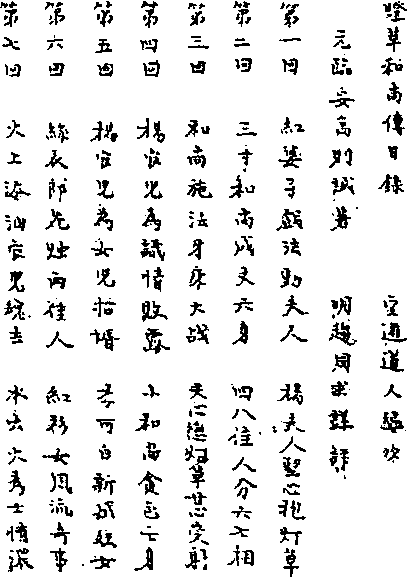 燈草和尚傳目錄 空通道人編次
元臨安高則誠著 明越周求虹評
第一回 紅婆子戲法動夫人 楊夫人堅心抱灯草
第二回 三寸和尚成丈六身 四八佳人分六七相
第三回 和尚施法牙床大战 夫人戀灯草甘心受
第四回 楊官兒為議情敗露 小和尚貪色亡身
第五回 楊官兒為女兒招壻 李可白新婚姣女
第六回 綠衣郎花燭兩佳人 紅衫女風流奇事
第七回 火上添油官兒魂去 水去火秀士情濃